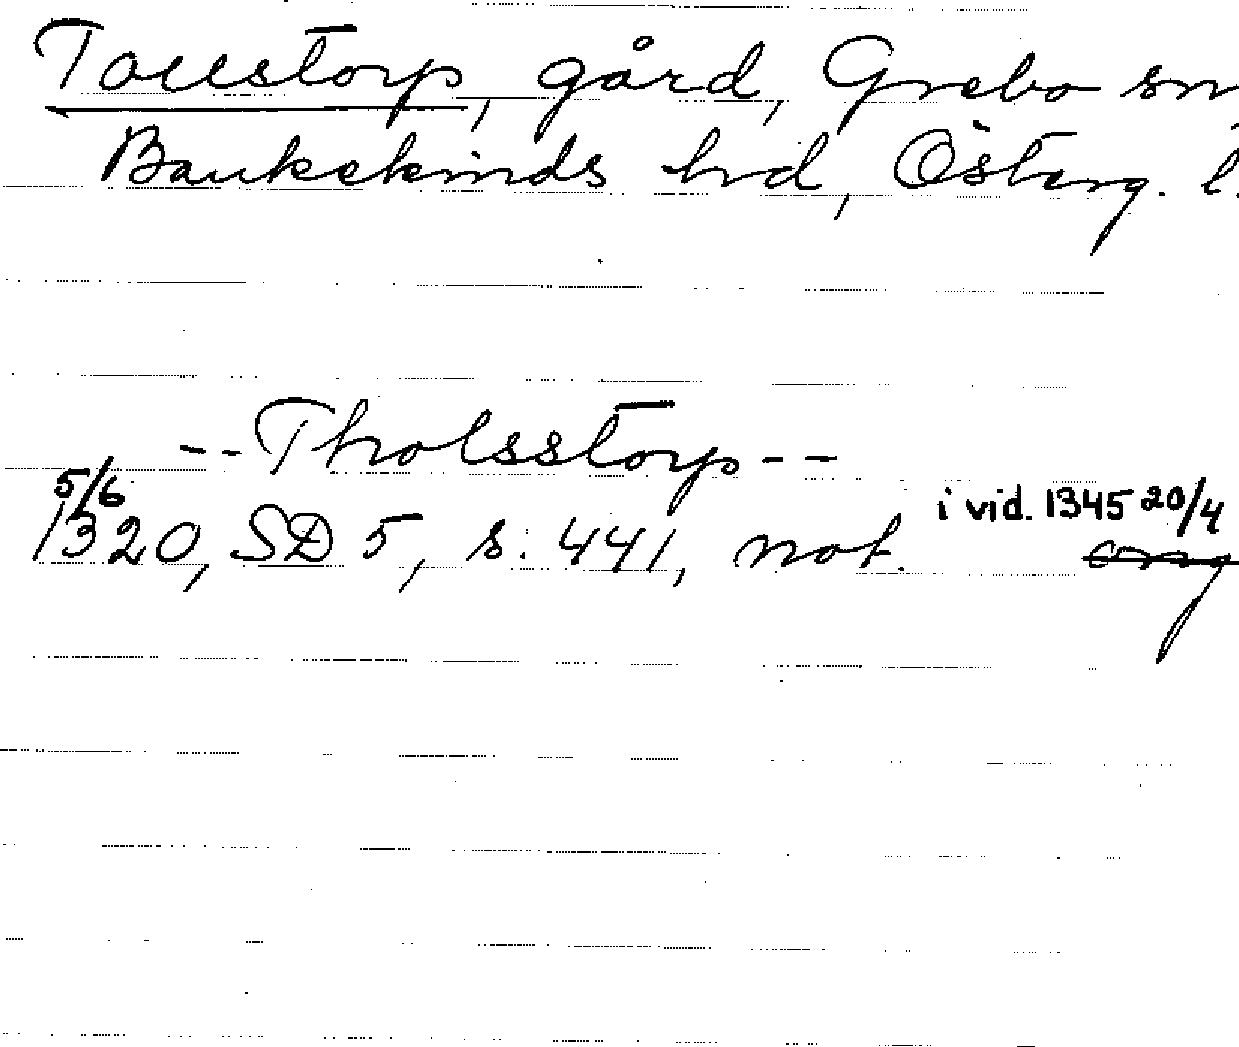 Tollstorp, gård, Grebo sn
Bankekinds hrd, Österg. l.
--Tholsstorp--
5/6 1320, SD 5, s. 441, not. i vid. 1345 20/4
orig